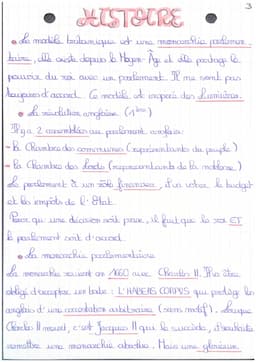 3
HISTOIRE
• Le modèle britannique est une monarchie parlemen-
taire, elle existe depuis le Moyen-Âge et elle partage le
pouvoir du roi avec un parlement. Ils ne sont pas
toujours d'accord. Ce modèle est inspiré des Lumières.
• La révolution anglaise (1ère)
Il y a 2 assemblées au parlement anglais:
- la Chambre des communes (représentants du peuple)
- la Chambre des lords (représentants de la noblesse)
Le parlement à un rôle financier, il va voter le budget
et les impôts de l'État.
Pour qu'une décision soit prise, il faut que le roi ET
le parlement soit d'accord.
• La monarchie parlementaire
La monarchie revient en 1660 avec Charles II. Il va être
obligé d'accepter un texte : L'HABEAS CORPUS qui protège les
anglais d'une arrestation arbitraire (sans motif). Lorsque
Charles II meurt, c'est Jacques II qui lui succède, il souhaite
remettre une monarchie absolue. Mais une glorieuse